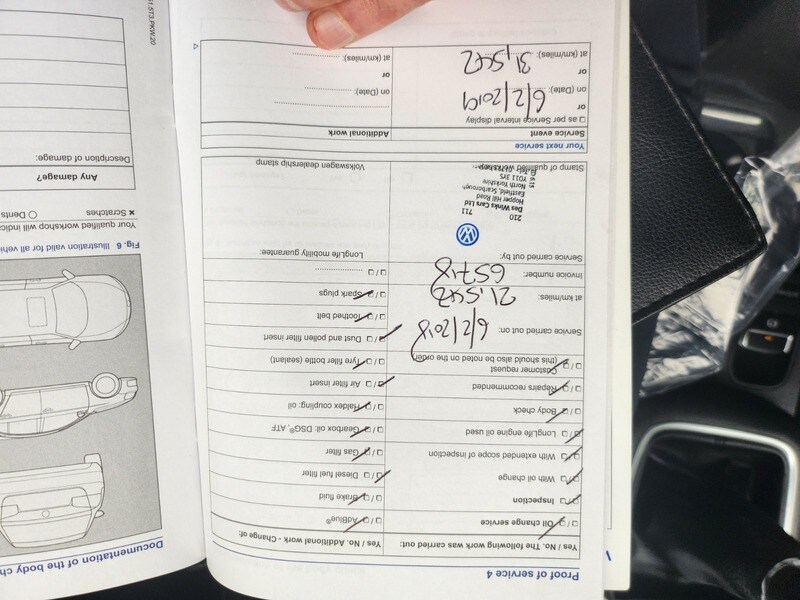 Proof of service 4
Yes / No. The following work was carried out:
Yes / No. Additional Work - Change of:
Oil change service
AdBlue®
Inspection
Brake fluid
With oil change
Diesel fuel filter
With extended scope of inspection
Gas filter
LongLife engine oil used
Gearbox oil: DSG®, ATF
Body check
Haldex coupling: oil
Repairs recommended
Air filter insert
Customer request
(this should also be noted on the order)
Tyre filler bottle (sealant)
Dust and pollen filter insert
Service carried out on: 6/2/2018
Toothed belt
at km/miles: 21,542
Spark plugs
Invoice number: 65718
Service carried out by:
LongLife mobility guarantee:
210 711
Des Winks Cars Ltd
Hopper Hill Road
Eastfield, Scarborough
North Yorkshire
YO11 3YS
Stamp of qualified workshop:
Volkswagen dealership stamp
Your next service
Service event
Additional work
as per Service interval display
or
on (Date): 6/2/2019
or
at (km/miles): 31,542
on (Date):
or
at (km/miles):
Documentation of the body ch
Fig. 6 Illustration valid for all vehi
Your qualified workshop will indica
× Scratches
Dents
Any damage?
Description of damage: